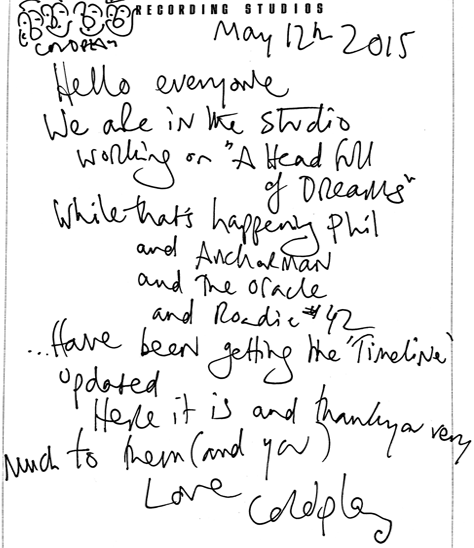 RECORDING STUDIOS
COLDPLAY
May 12th 2015
Hello everyone
We are in the studio
working on "A Head full
of Dreams"
While that's happening Phil
and Anchorman
and The Oracle
and Roadie #42
...Have been getting the 'Timeline'
updated
Here it is and thankyou very
much to them (and you)
Love Coldplay